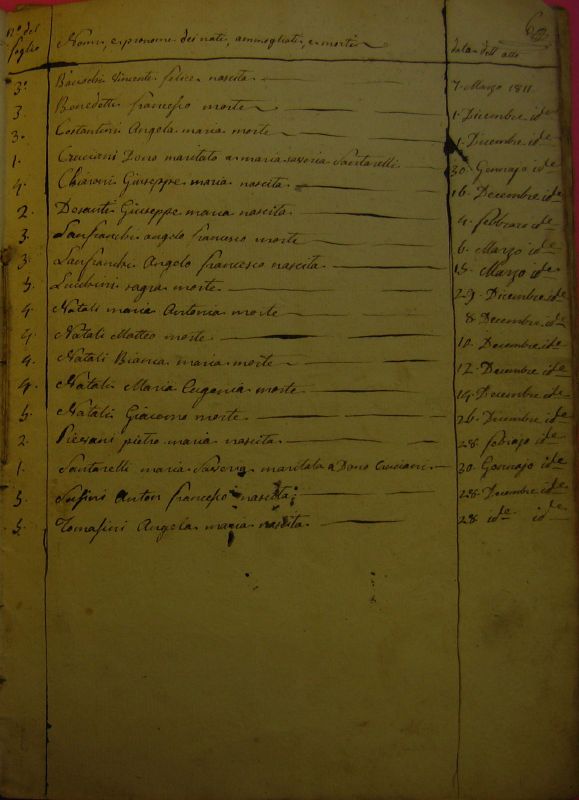 N.o del foglio Nomi, e pronome dei nati, ammogliati, e morti data dell'atto
3. Vincenti felice nascita 7. Marzo 1811
3. Benedetti francesco morte 1. Dicembre id.e
3. Costantini Angela maria morte 1. Dicembre id.e
1. Cruciani Dono maritato a maria saveria Santarelli 30. Gennajo id.e
4. Chiaroni Giuseppe maria nascita 16. Decembre id.e
2. Desanti Giuseppe maria nascita 4. febbraro id.e
3. Lanfranchi angelo francesco morte 6. Marzo id.e
3. Lanfranchi Angelo francesco nascita 15. Marzo id.e
5. morte 29. Dicembre id.e
4. Natali maria Antonia morte 8 Decembre id.e
4. Natali Matteo morte 10. Decembre id.e
4. Natali Bianca maria morte 12. Decembre id.e
4. Natali Maria Eugenia morte 14. Decembre id.e
5. Natali Giacomo morte 26. Decembre id.e
2. pietro maria nascita 28. febrajo id.e
1. Santarelli maria Saveria maritata a Dono Cruciani 30. Gennajo id.e
5. Anton francesco nascita 28. Decembre id.e
5. Tomasini Angela maria nascita 28. id.e id.e